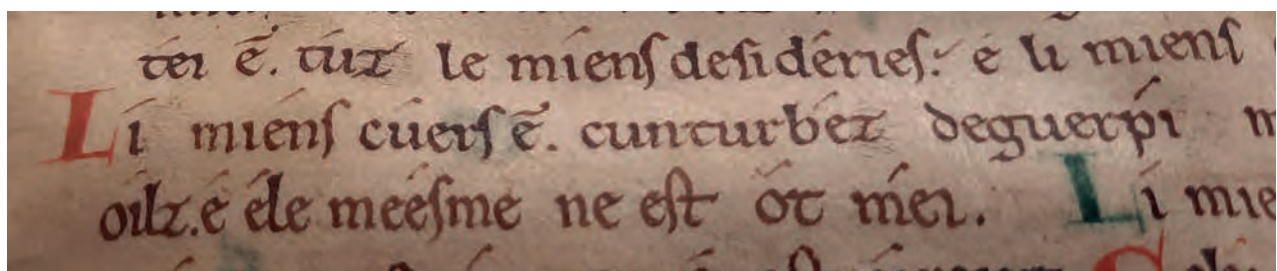 tei ē. tuz le miens desidéries: é li miens
Li miens cúers ē. cunturbez deguerpi
oilz. é éle meésme ne est ót méi. Li mie